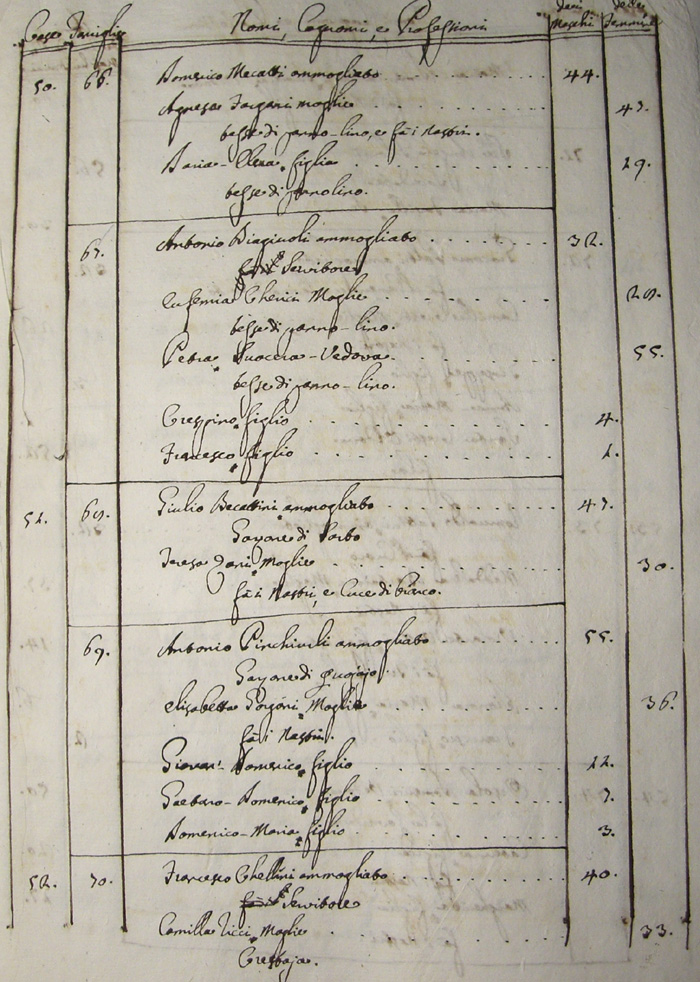 Case Famiglie Nomi, Cognomi, e Professioni Maschi Femmine
50. 66. Domenico Mecatti ammogliato 44.
Agnesa moglie 43.
tesse di panno-lino, e fà i Nastri.
Maria-Elena figlia 19.
tesse di pannolino.
67. Antonio Biagiuoli ammogliato 32.
Servitore
Eufemia Cherici Moglie 29.
tesse di panno-lino.
Petra Suocera-Vedova 55.
tesse di panno-lino.
Crespino figlio 4.
Francesco figlio 1.
51. 68. Giulio Becattini ammogliato 43.
Garzone di
Teresa Dani Moglie 30.
fà i Nastri, e Cuce di bianco.
69. Antonio ammogliato 55.
Garzone di
Elisabetta Moglie 36.
fà i Nastri.
Giovan: Domenico figlio 12.
Gaetano-Domenico figlio 7.
Domenico-Maria figlio 3.
52. 70. Francesco Ghellini ammogliato 40.
Servitore
Camilla Ricci Moglie 33.
Crestaja.